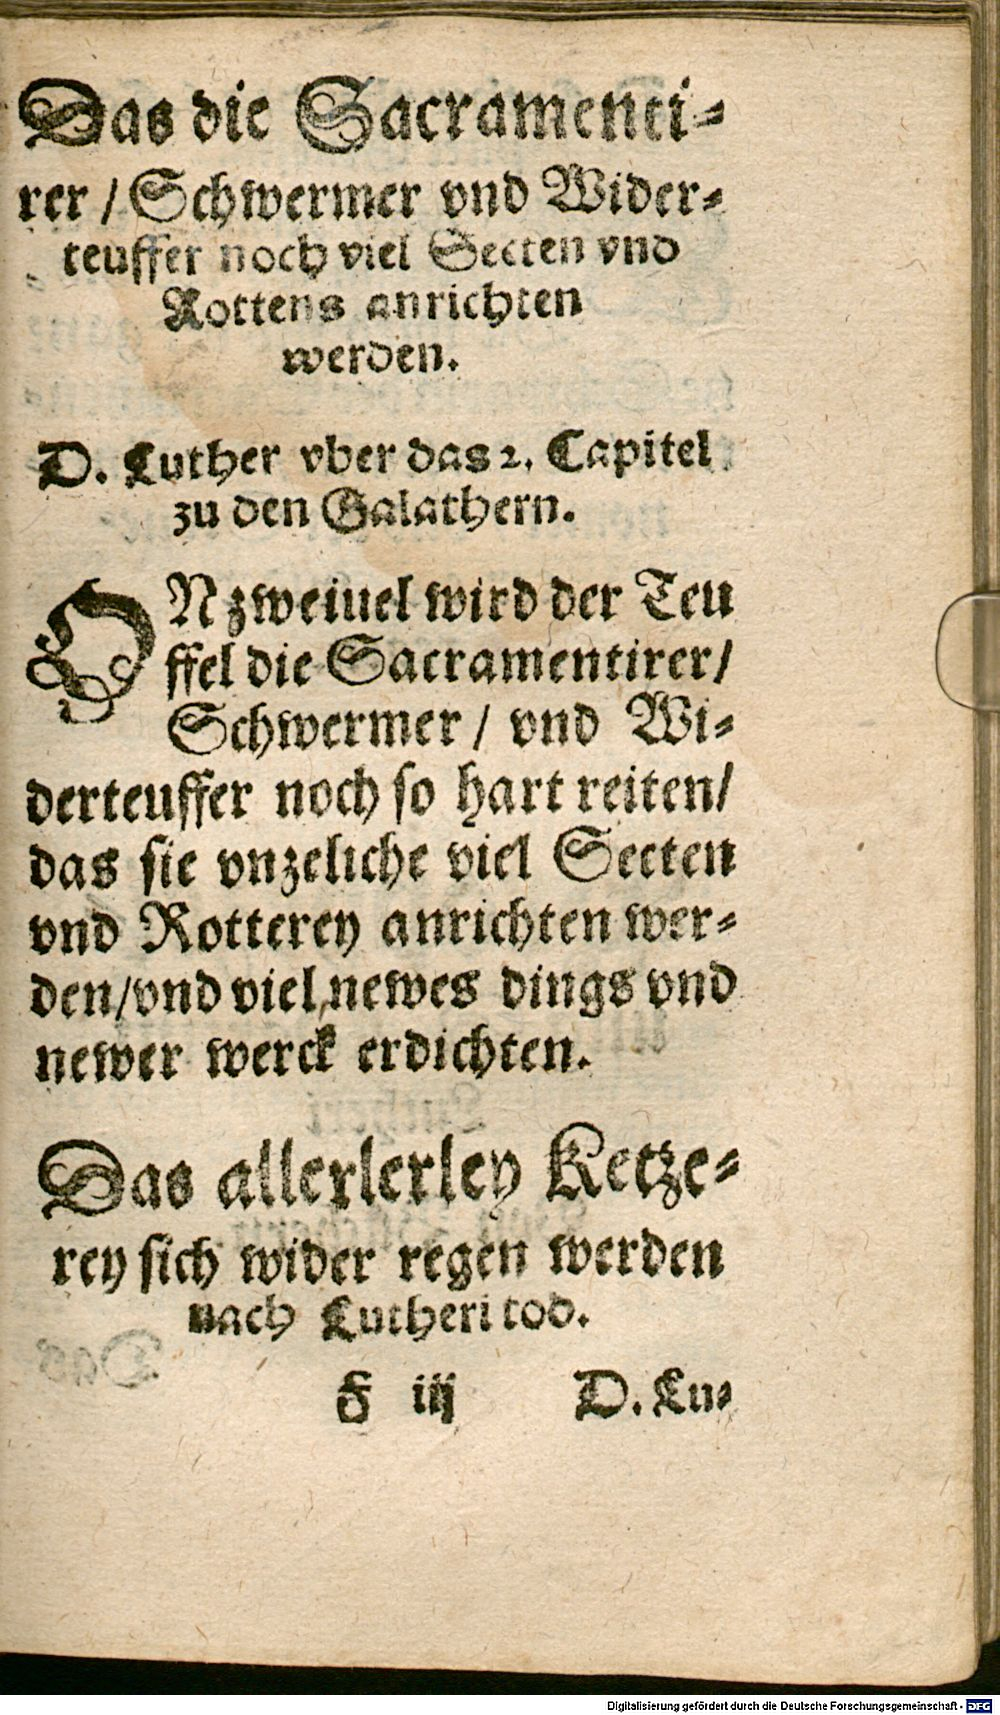 Das die Sacramenti-
rer / Schwermer vnd Wider-
teuffer noch viel Secten vnd
Rottens anrichten
werden.
D. Luther vber das 2. Capitel
zu den Galathern.
ONzweiuel wird der Teu
ffel die Sacramentirer/
Schwermer / vnd Wi-
derteuffer noch so hart reiten/
das sie vnzeliche viel Secten
vnd Rotterey anrichten wer-
den/vnd viel newes dings vnd
newer werck erdichten.
Das allerlerley Ketze-
rey sich wider regen werden
nach Lutheri tod.
F iij D. Lu-
Digitalisierung gefördert durch die Deutsche Forschungsgemeinschaft - DFG